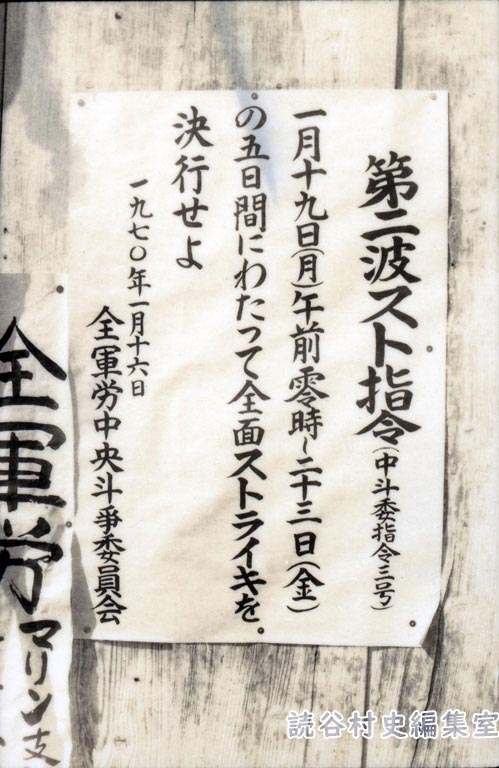 第二波スト指令(中斗委指令三号)
一月十九日(月)午前零時〜二十三日(金)
の五日間にわたって全面ストライキを。
決行せよ
一九七〇年一月十六日
全軍労中央斗争委員会
全軍労マリン支
読谷村史編集室